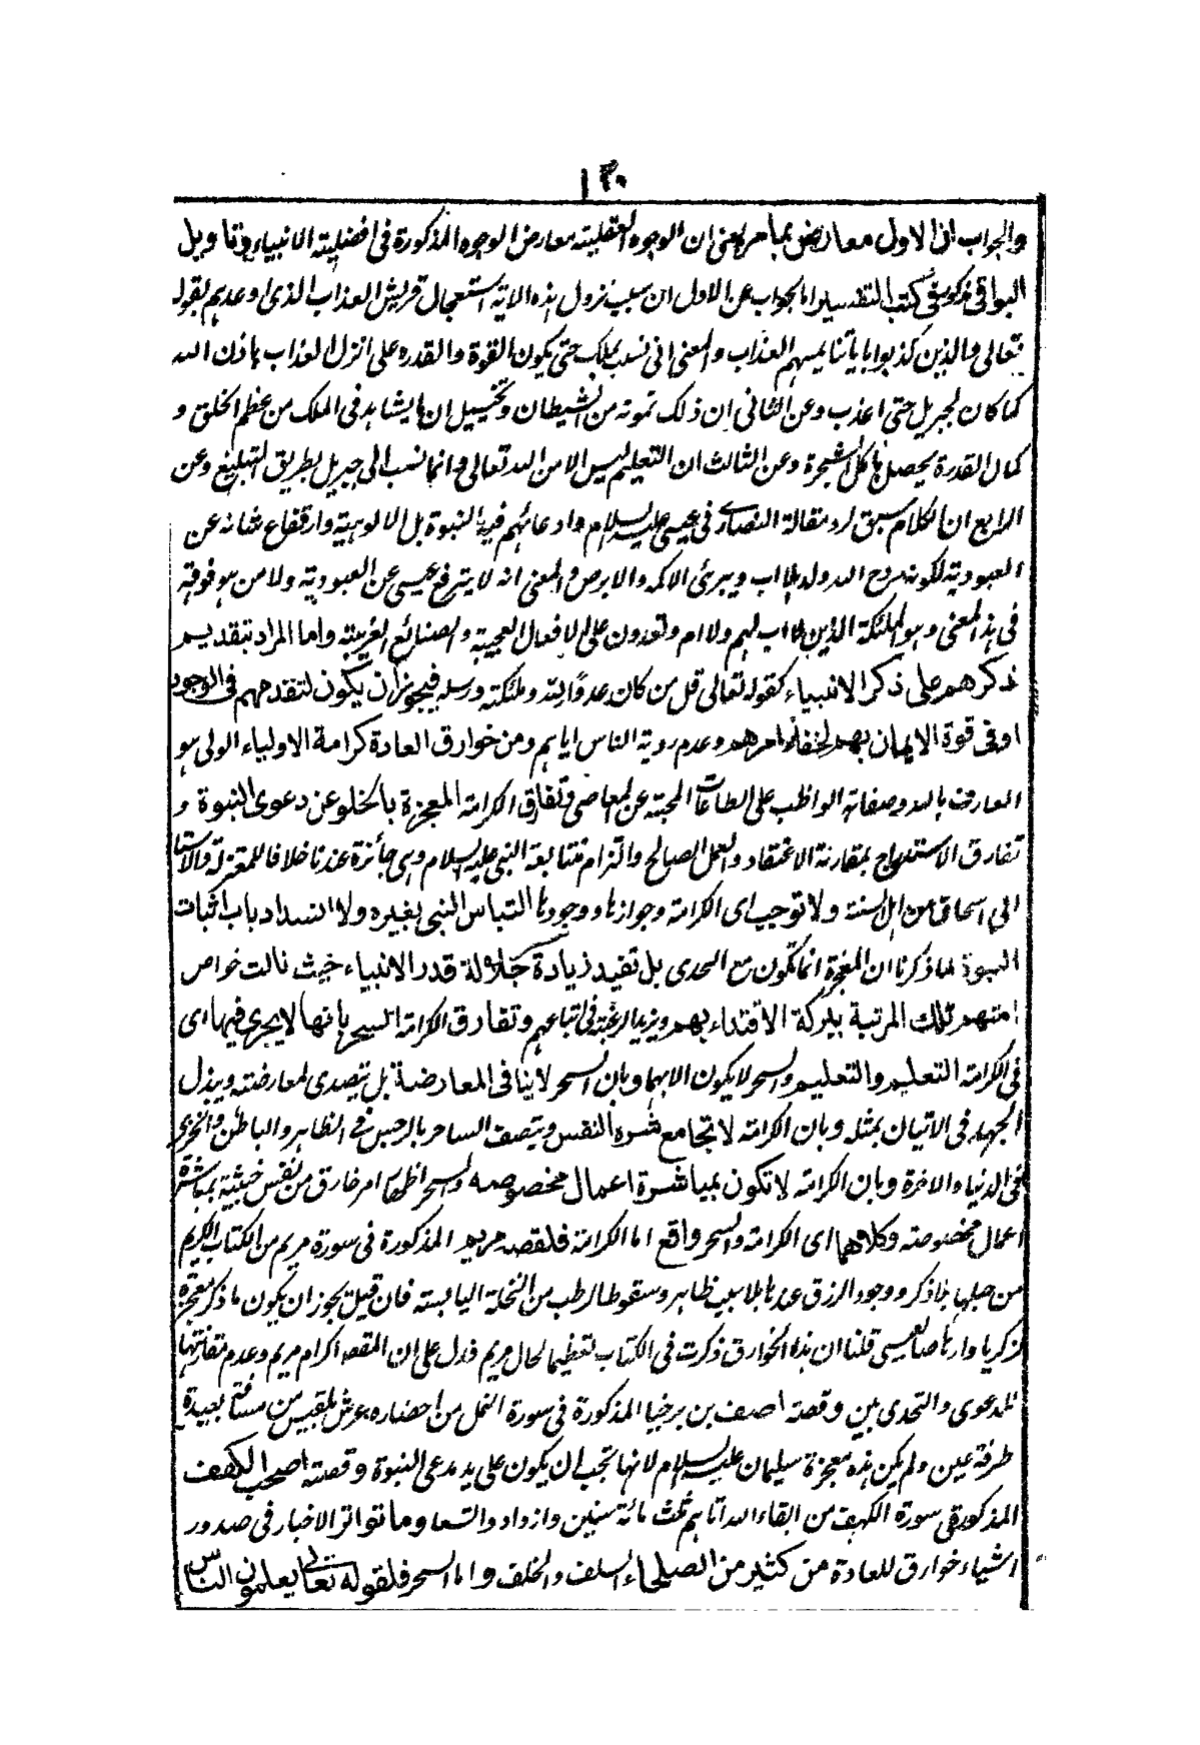 ١٣٠
والجواب ان الاول معارض بما مر يعنى ان الوجوه العقلية معارض الوجوه المذكورة فى افضلية الانبياء وتاويل
البواقى مذكور فى كتب التفسير اما الجواب عن الاول ان سبب نزول هذه الاية استعجال قريش العذاب الذى اوعدهم بقوله
تعالى والذين كذبوا باياتنا يمسهم العذاب والمعنى انى لست بملك حتى يكون القوة والقدرة على انزل العذاب باذن الله
كما كان لجبريل حتى اعذب وعن الثانى ان ذلك تمويه من الشيطان وتخييل ان ما يشاهد فى الملك من عظم الخلق و
كمال القدرة يحصل باكل الشجرة وعن الثالث ان التعليم ليس الا من الله تعالى وانما نسب الى جبريل بطريق التبليغ وعن
الرابع ان الكلام سبق لرد مقالة النصارى فى عيسى عليه السلام وادعائهم فيه النبوة بل الالوهية وارتفاع شانه عن
العبودية لكونه روح الله ولد بلا اب ويبرئ الاكمه والابرص والمعنى انه لا يترفع عيسى عن العبودية ولا من هو فوقه
فى هذا المعنى وهو الملئكة الذين لا اب لهم ولا ام وتعدون على الافعال العجيبة والصنائع الغريبة واما المراد بتقديم
ذكرهم على ذكر الانبياء كقوله تعالى قل من كان عدوا لله وملئكته ورسله فيجوز ان يكون لتقدمهم فى الوجود
او فى قوة الايمان بهم لخفاء امرهم وعدم روية الناس اياهم ومن خوارق العادة كرامة الاولياء الولى هو
العارف بالله وصفاته المواظب على الطاعات المجتنب عن المعاصى وتفارق الكرامة المعجزة بالخلو عن دعوى النبوة و
تفارق الاستدراج بمقارنة الاعتقاد والعمل الصالح والتزام متابعة النبى عليه السلام وهى جائزة عندنا خلافا للمعتزلة والاستاذ
ابى اسحاق من اهل السنة ولا توجب اى الكرامة وجوازها ووجودها التباس النبى بغيره ولا انسداد باب اثبات
النبوة لما ذكرنا ان المعجزة انما تكون مع التحدى بل تفيد زيادة جلالة قدر الانبياء حيث نالت خواص
امتهم تلك المرتبة ببركة الاقتداء بهم ويزيد الرغبة فى اتباعهم وتفارق الكرامة السحر بانها لا يجرى فيها اى
فى الكرامة التعليم والتعليم والسحر لا يكون الا بهما وبان السحر لا ينافى المعارضة بل يتصدى لمعارضته ويبذل
الجهد فى الاتيان بمثله وبان الكرامة لا تجامع شره النفس ويتصف الساحر بالرجس فى الظاهر والباطن والخزى
فى الدنيا والاخرة وبان الكرامة لا تكون بمباشرة اعمال مخصوصه والسحر اظهار امر خارق من نفس خبيثة بمباشرة
اعمال مخصوصة وكلاهما اى الكرامة والسحر واقع اما الكرامة فلقصة مريم المذكورة فى سورة مريم من الكتاب الكريم
من حبلها بلا ذكر ووجود الرزق عندها بلا سبب ظاهر وسقوط الرطب من النخلة اليابسة فان قيل يجوز ان يكون ما ذكر معجزة
لزكريا وارهاصا لعيسى قلنا ان هذه الخوارق ذكرت فى الكتاب تعظيما لحال مريم فدل على ان المقصد اكرام مريم وعدم مقارنتها
للدعوى والتحدى بين وقصة اصف بن برخيا المذكورة فى سورة النمل من احضاره عرش بلقيس من مسافة بعيدة
طرفة عين ولم يكن هذه معجزة سليمان عليه السلام لانها تجب ان يكون على يد مدعى النبوة وقصته اصحب الكهف
المذكورة فى سورة الكهف من ابقاء الله اياهم ثلث مائة سنين وازدادوا تسعا وما تواتر الاخبار فى صدور
اشياء خوارق للعادة من كثير من الصلحاء السلف والخلف واما السحر فلقوله تعالى يعلمون الناس